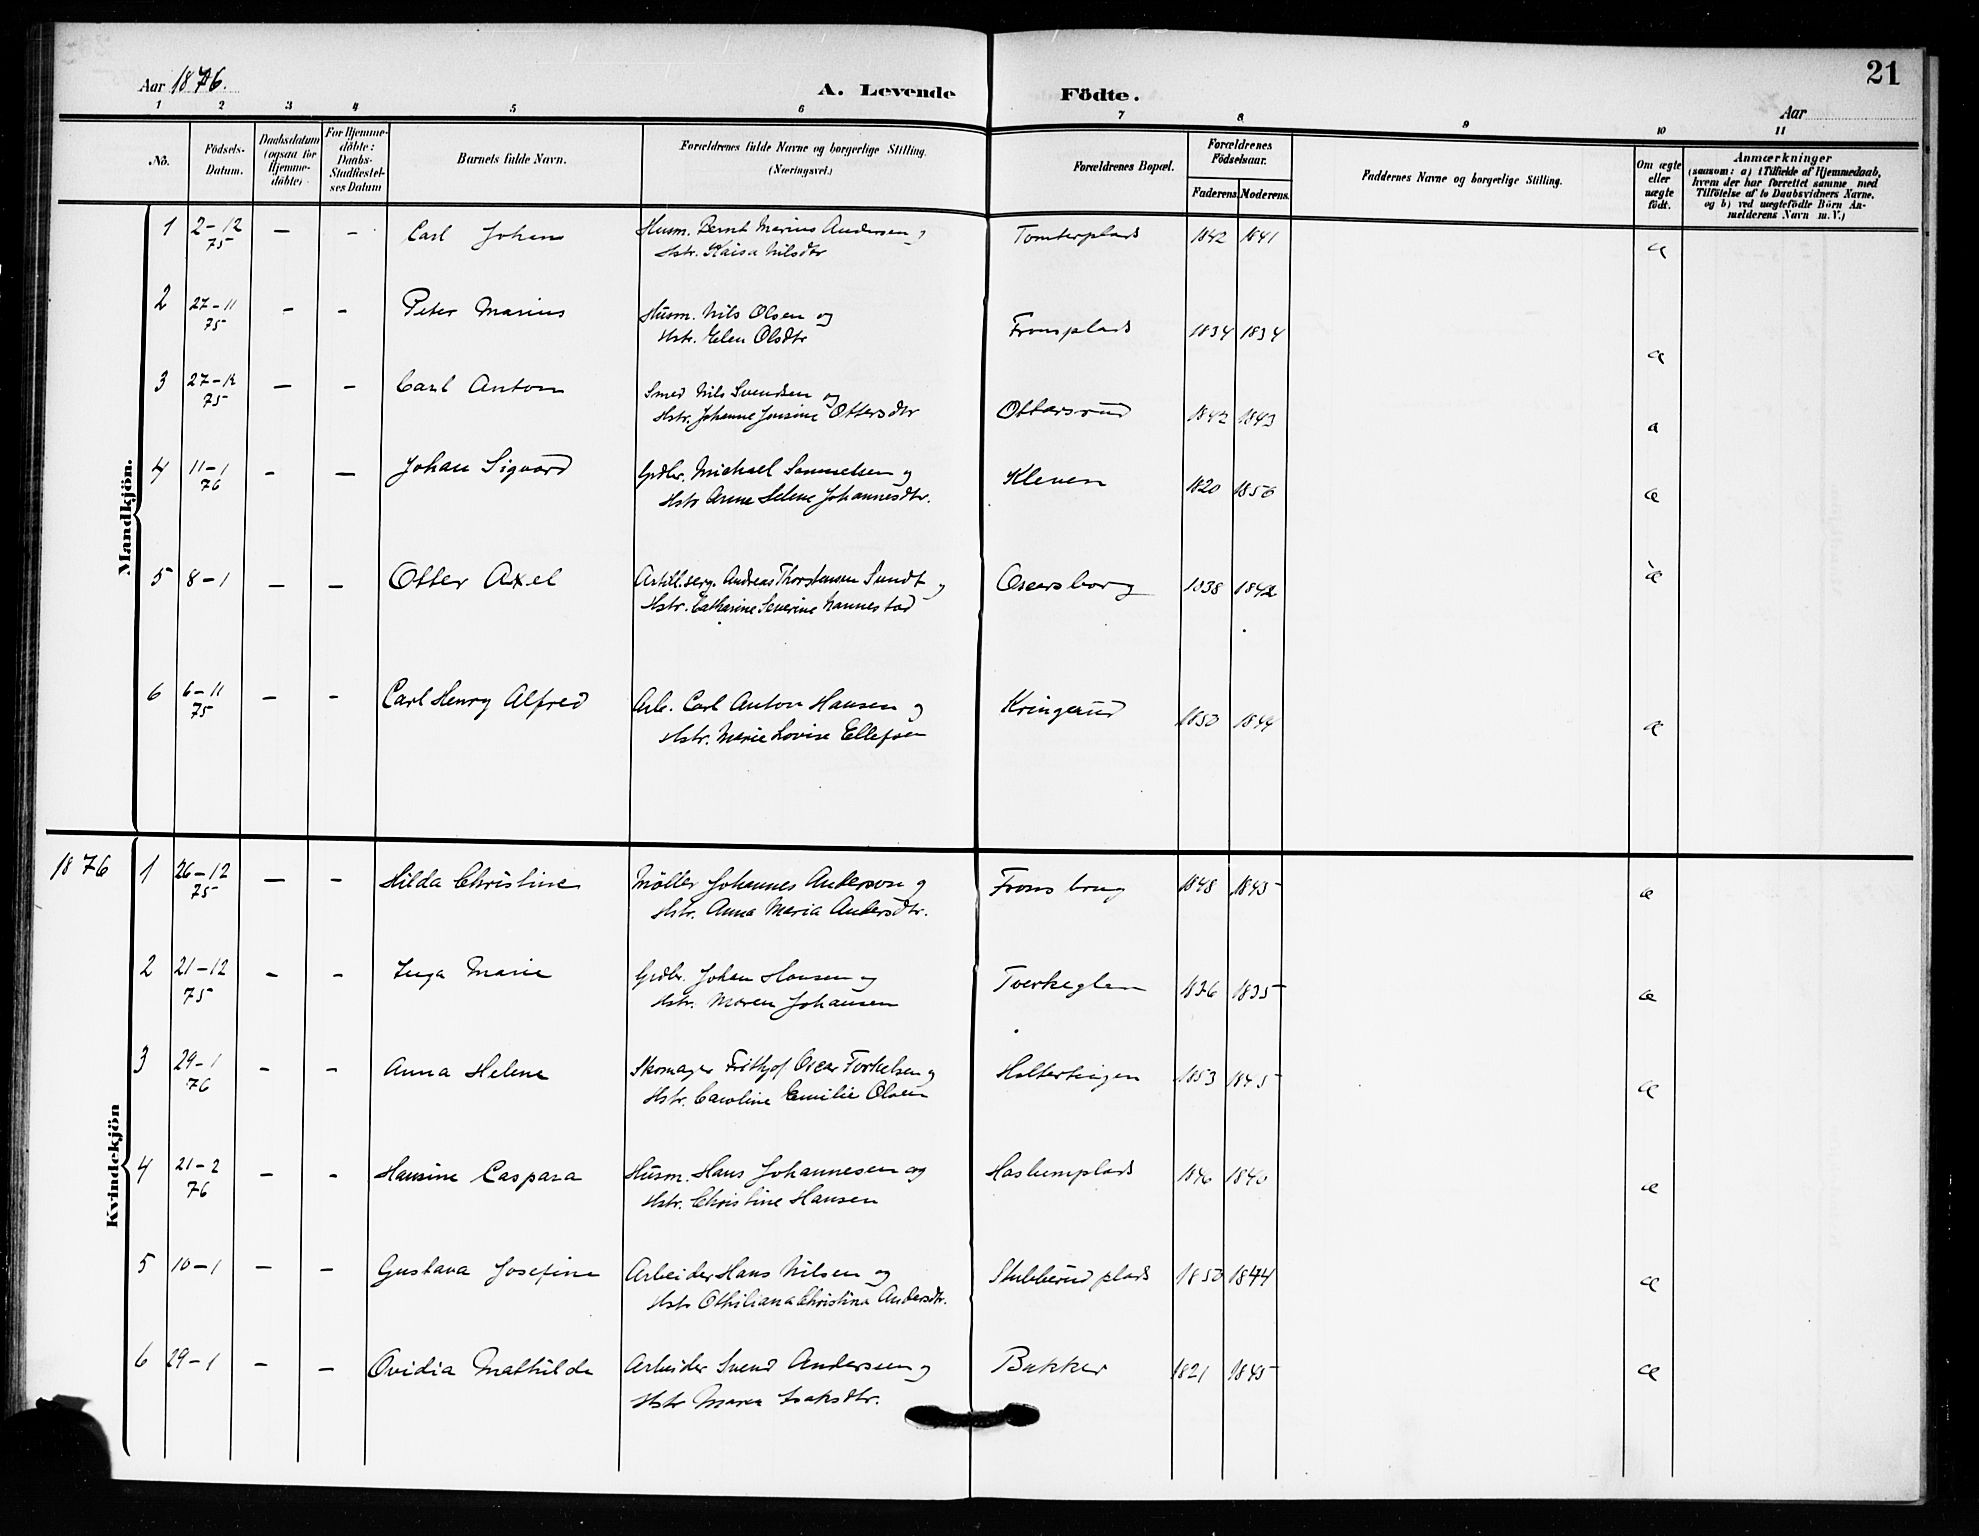 21
Aar 1876.
A. Levende Födte.
Aar
1 2 3 4 5 6 7 8 9 10 11
No.
Födsels-Datum.
Daabsdatum (ogsaa for Hjemme-döbte)
For Hjemme-döbte: Daabs-Stadfæstel-ses Datum
Barnets fulde Navn.
Forældrenes fulde Navne og borgerlige Stilling. (Næringsvei.)
Forældrenes Bopæl.
Forældrenes Födselsaar.
Faderens. Moderens.
Faddernes Navne og borgerlige Stilling.
Om ægte eller uægte födt.
Anmærkninger
(saasom: a) i Tilfælde af Hjemmedaab, hvem der har forrettet samme med Tilföielse af to Daabsvidners Navne, og b) ved uægtefödte Börn An-melderens Navn m. V.)
Mandkjön.
1 2-12 75 – – Carl Johan Husm. Bernt Marius Andersen og Tomterplads 1842 1841 æ
Hstr. Kaisa Nilsdtr
2 27-11 75 – – Peter Marius Husm. Nils Olsen og Fronsplads 1834 1834 æ
Hstr. Elen Olsdtr
3 27-12 75 – – Carl Anton Smed Nils Svendsen og Ottarsrud 1842 1843 æ
Hstr. Johanne Jensine Ottersdtr
4 11-1 76 – – Johan Sigvard Grdbr. Michael Samuelsen og Kleven 1820 1850 æ
Hstr Anne Helene Johannesdtr.
5 8-1 – – Otter Axel Artill.serg. Andreas Thorstensen Sundt og Oscarsborg 1838 1842 æ
Hstr. Catharine Severine Nannestad
6 6-11 75 – – Carl Henry Alfred Arb. Carl Anton Hansen og Kringerud 1850 1844 æ
Hstr. Marie Lovise Ellefsen
1876
Kvindekjön
1 26-12 75 – – Hilda Christine Møller Johannes Anderson og Frons brug 1848 1845 æ
Hstr. Anna Maria Andersdtr.
2 21-12 75 – – Inga Marie Grdbr. Johan Hansen og Tverkeglen 1836 1835 æ
Hstr. Maren Johansen
3 29-1 76 – – Anna Helene Skomager Frithjof Oscar Torkelsen og Holtertangen 1853 1845 æ
Hstr. Caroline Emilie Olsen
4 21-2 76 – – Hansine Caspara Husm. Hans Johannesen og Haslumplads 1846 1840 æ
Hstr. Christine Hansen
5 10-1 – – Gustava Josefine Arbeider Hans Nilsen og Stubberud plads 1850 1844 æ
Hstr Othiliana Christina Andersdtr.
6 29-1 – – Ovidia Mathilde Arbeider Svend Andersen og Bakker 1821 1845 æ
Hstr Maren Isaksdtr.